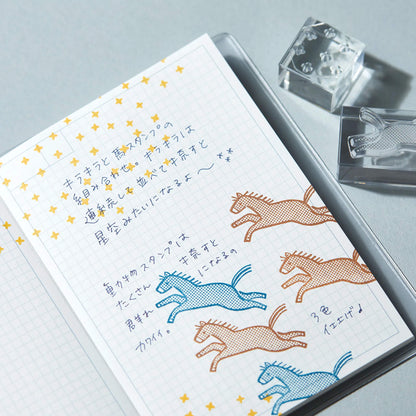 キラキラと馬スタンプの
組み合わせ。キラキラは
連続して並べて押すと
星空みたいになるよ〜
動物のスタンプは
たくさん押すと
群れになるの
カワイイ。
3色
仕上げ♪